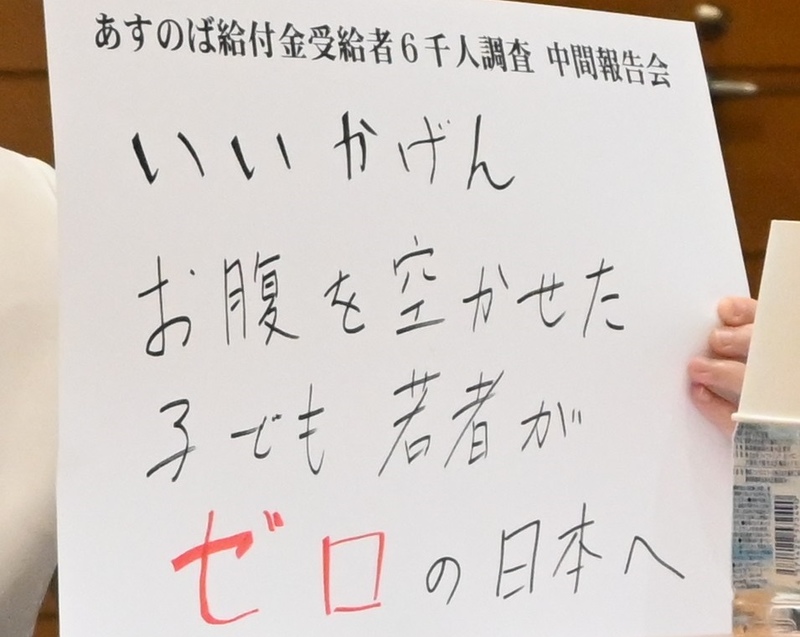 あすのば給付金受給者6千人調査 中間報告会
いいかげん
お腹を空かせた
子でも若者が
ゼロの日本へ